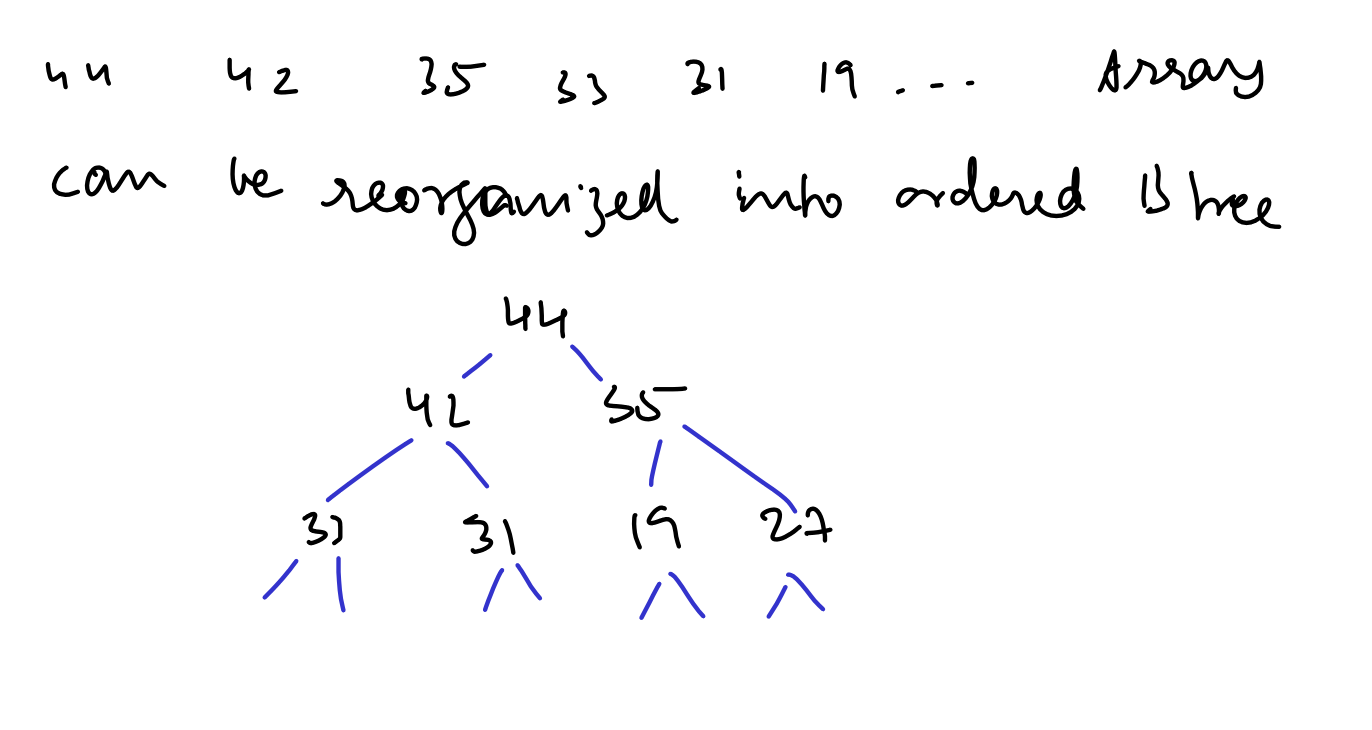 44 42 35 33 31 19 . - - - Array
can be reorganized into ordered B tree
44
42 35
33 31 19 27